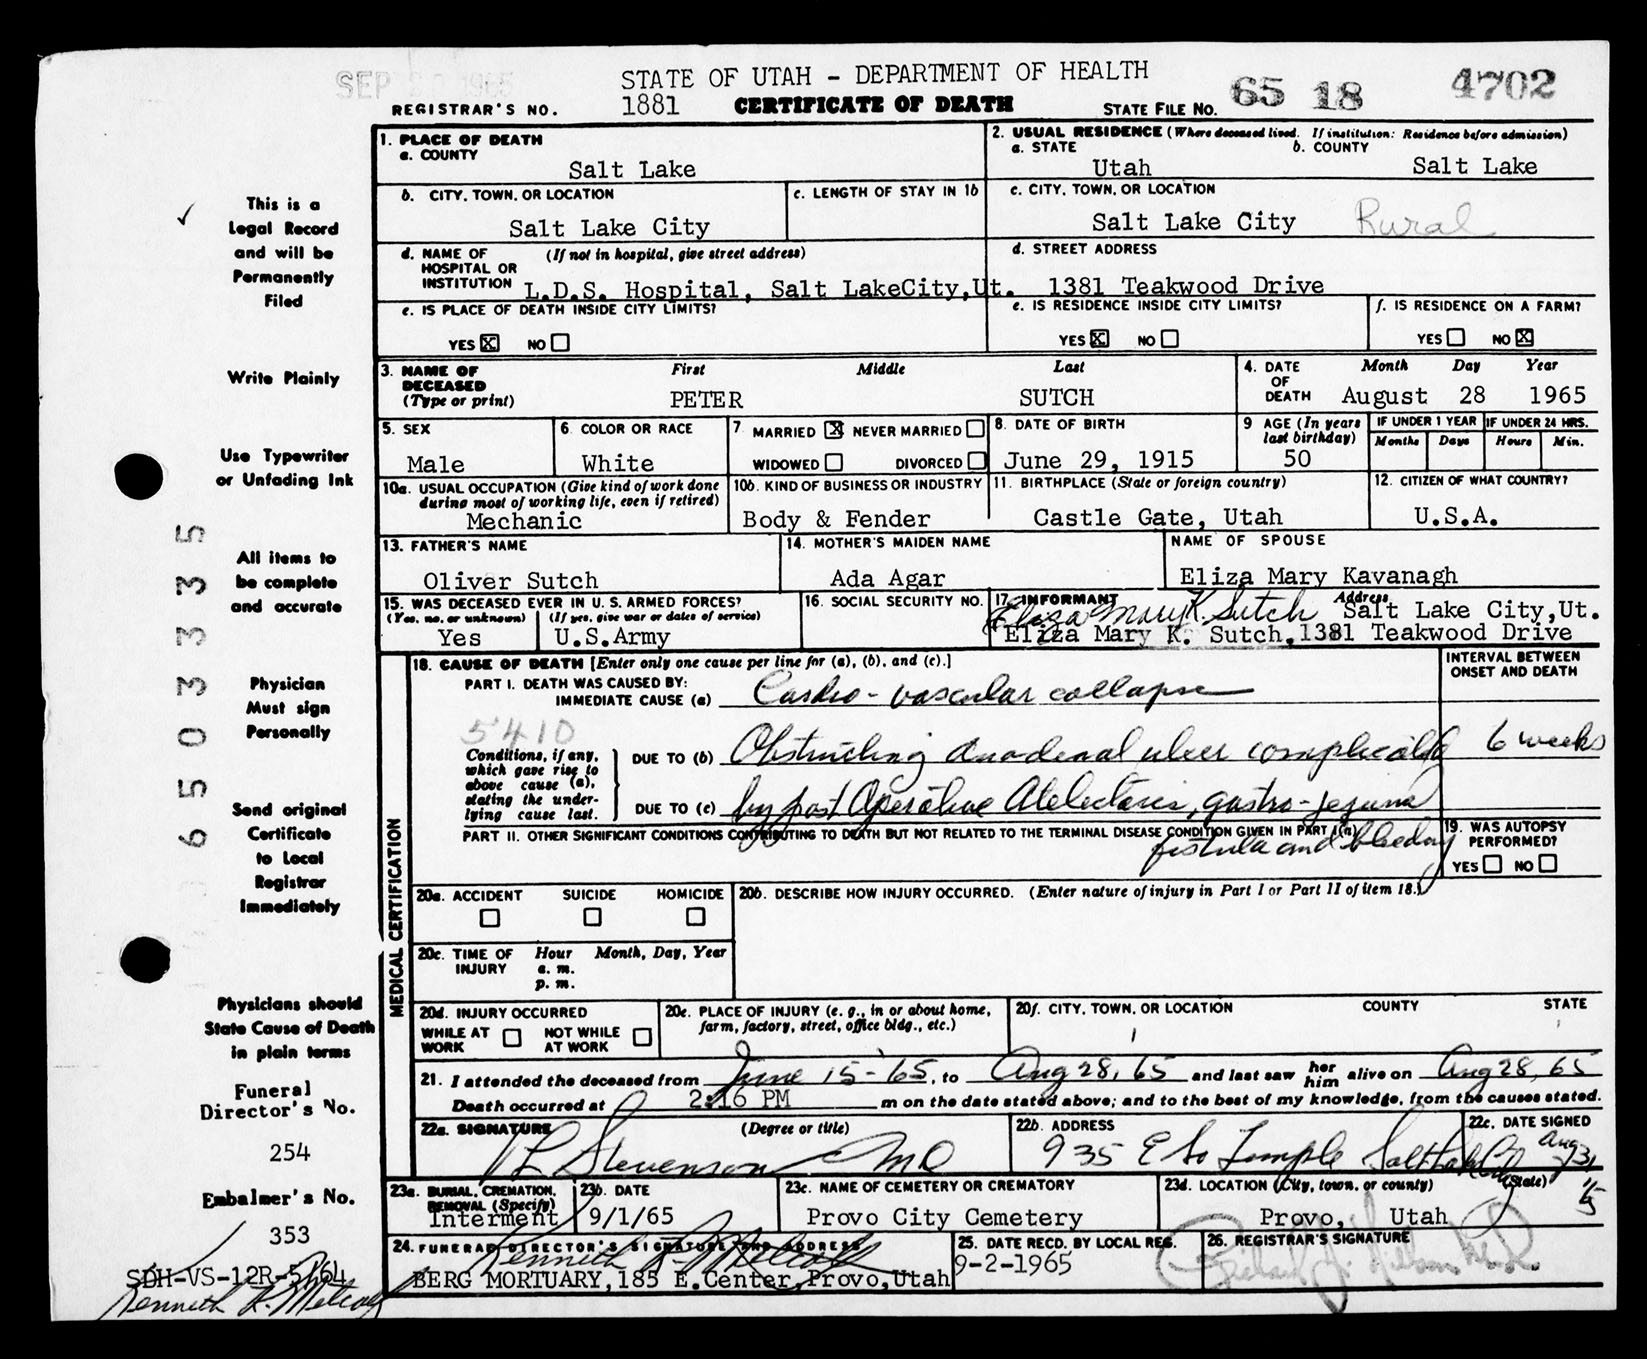 SEP 1965
STATE OF UTAH - DEPARTMENT OF HEALTH
REGISTRAR'S NO. 1881 CERTIFICATE OF DEATH STATE FILE NO. 65 18 4702
This is a
Legal Record
and will be
Permanently
Filed
Write Plainly
Use Typewriter
or Unfading Ink
All items to
be complete
and accurate
Physician
Must sign
Personally
Send original
Certificate
to Local
Registrar
Immediately
Physicians should
State Cause of Death
in plain terms
Funeral
Director's No.
254
Embalmer's No.
353
SDH-VS-12R-5/64
Kenneth R. Metcalf
6 5 0 3 3 3 5
1. PLACE OF DEATH
a. COUNTY
Salt Lake
2. USUAL RESIDENCE (Where deceased lived. If institution: Residence before admission)
a. STATE b. COUNTY
Utah Salt Lake
b. CITY, TOWN, OR LOCATION
Salt Lake City
c. LENGTH OF STAY IN 1b
c. CITY, TOWN, OR LOCATION
Salt Lake City Rural
d. NAME OF (If not in hospital, give street address)
HOSPITAL OR
INSTITUTION L.D.S. Hospital, Salt LakeCity,Ut.
d. STREET ADDRESS
1381 Teakwood Drive
e. IS PLACE OF DEATH INSIDE CITY LIMITS?
YES X NO
e. IS RESIDENCE INSIDE CITY LIMITS?
YES X NO
f. IS RESIDENCE ON A FARM?
YES NO X
3. NAME OF First Middle Last
DECEASED
(Type or print) PETER SUTCH
4. DATE Month Day Year
OF
DEATH August 28 1965
5. SEX
Male
6 COLOR OR RACE
White
7 MARRIED X NEVER MARRIED
WIDOWED DIVORCED
8. DATE OF BIRTH
June 29, 1915
9 AGE (In years
last birthday)
50
IF UNDER 1 YEAR IF UNDER 24 HRS.
Months Days Hours Min.
10a. USUAL OCCUPATION (Give kind of work done
during most of working life, even if retired)
Mechanic
10b. KIND OF BUSINESS OR INDUSTRY
Body & Fender
11. BIRTHPLACE (State or foreign country)
Castle Gate, Utah
12. CITIZEN OF WHAT COUNTRY?
U.S.A.
13. FATHER'S NAME
Oliver Sutch
14. MOTHER'S MAIDEN NAME
Ada Agar
NAME OF SPOUSE
Eliza Mary Kavanagh
15. WAS DECEASED EVER IN U.S. ARMED FORCES?
(Yes, no, or unknown) (If yes, give war or dates of service)
Yes U.S.Army
16. SOCIAL SECURITY NO.
17. INFORMANT Address
Eliza Mary K. Sutch Salt Lake City,Ut.
Eliza Mary K. Sutch,1381 Teakwood Drive
MEDICAL CERTIFICATION
18. CAUSE OF DEATH [Enter only one cause per line for (a), (b), and (c).]
INTERVAL BETWEEN
ONSET AND DEATH
PART I. DEATH WAS CAUSED BY:
IMMEDIATE CAUSE (a) Cardio-vascular collapse
5410
Conditions, if any,
which gave rise to
above cause (a),
stating the under-
lying cause last.
DUE TO (b) Obstructing duodenal ulcer complicated 6 weeks
DUE TO (c) by post Operative Atelectasis, gastro-jejunal
PART II. OTHER SIGNIFICANT CONDITIONS CONTRIBUTING TO DEATH BUT NOT RELATED TO THE TERMINAL DISEASE CONDITION GIVEN IN PART I(a)
fistula and bleeding
19. WAS AUTOPSY
PERFORMED?
YES NO
20a. ACCIDENT SUICIDE HOMICIDE
20b. DESCRIBE HOW INJURY OCCURRED. (Enter nature of injury in Part I or Part II of item 18.)
20c. TIME OF Hour Month, Day, Year
INJURY a. m.
p. m.
20d. INJURY OCCURRED
WHILE AT NOT WHILE
WORK AT WORK
20e. PLACE OF INJURY (e. g., in or about home,
farm, factory, street, office bldg., etc.)
20f. CITY, TOWN, OR LOCATION COUNTY STATE
21. I attended the deceased from June 15-'65, to Aug 28, 65 and last saw her him alive on Aug 28, 65
Death occurred at 2:16 PM m on the date stated above; and to the best of my knowledge, from the causes stated.
22a. SIGNATURE (Degree or title)
L Stevenson MD
22b. ADDRESS
935 E So Temple Salt Lake City
22c. DATE SIGNED
Aug 31
23a. BURIAL, CREMATION,
REMOVAL (Specify)
Interment
23b. DATE
9/1/65
23c. NAME OF CEMETERY OR CREMATORY
Provo City Cemetery
23d. LOCATION (City, town, or county) (State)
Provo, Utah
24. FUNERAL DIRECTOR'S SIGNATURE AND ADDRESS
Kenneth R. Metcalf
BERG MORTUARY,185 E.Center,Provo,Utah
25. DATE RECD. BY LOCAL REG.
9-2-1965
26. REGISTRAR'S SIGNATURE